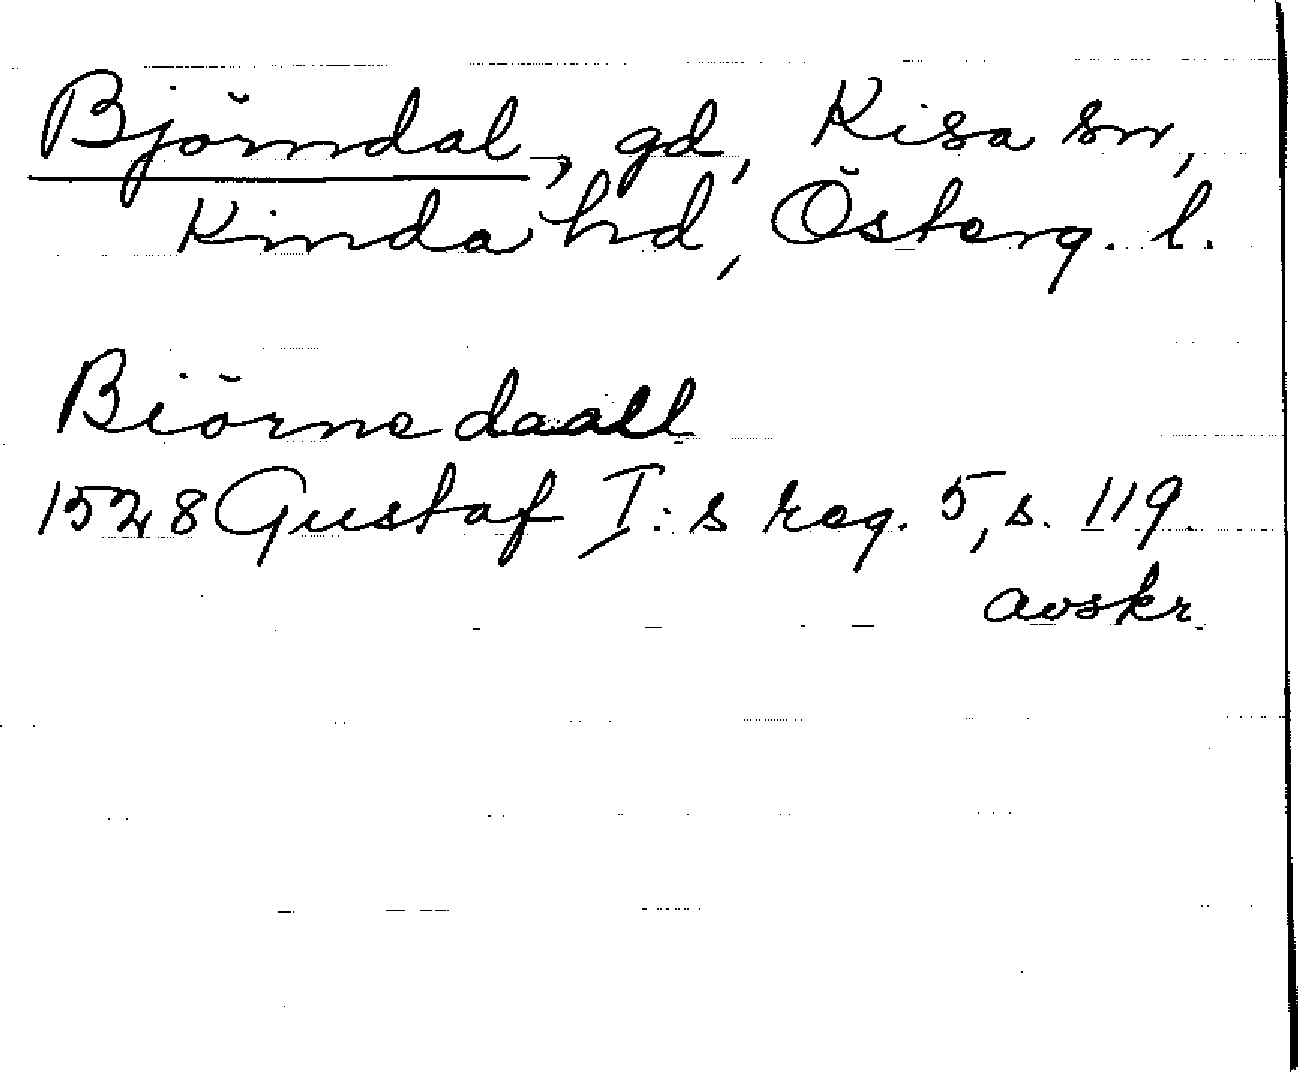 Björndal, gd, Kisa sn,
Kinda hd, Österg. l.
Biörnedaall
1528 Gustaf I:s reg. 5, s. 119.
avskr.